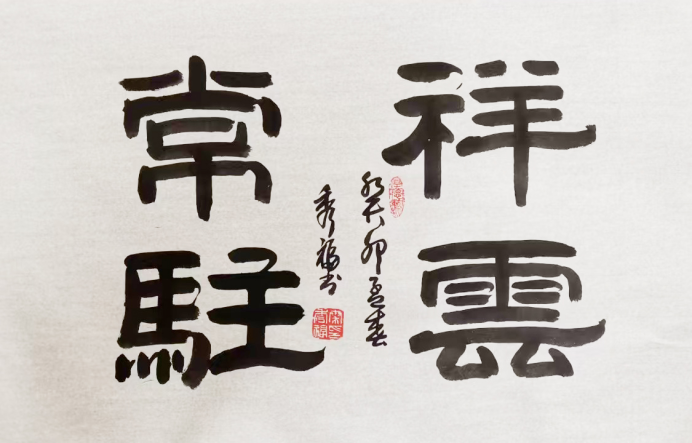 祥雲
常駐
癸卯孟春
秀福书